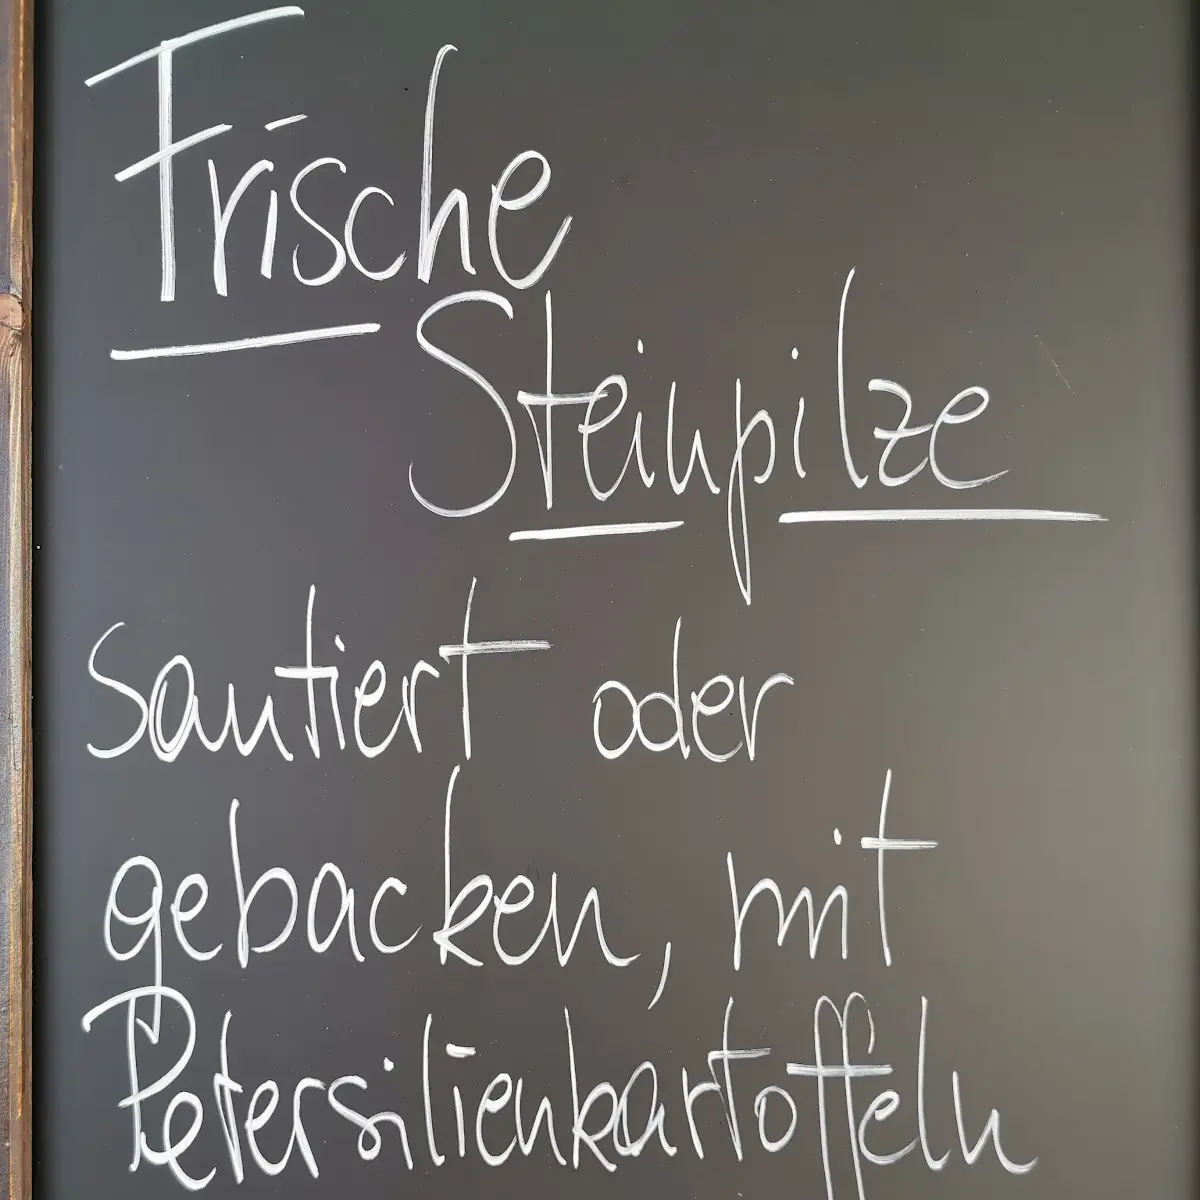 Frische
Steinpilze
Sautiert oder
gebacken, mit
Petersilienkartoffeln